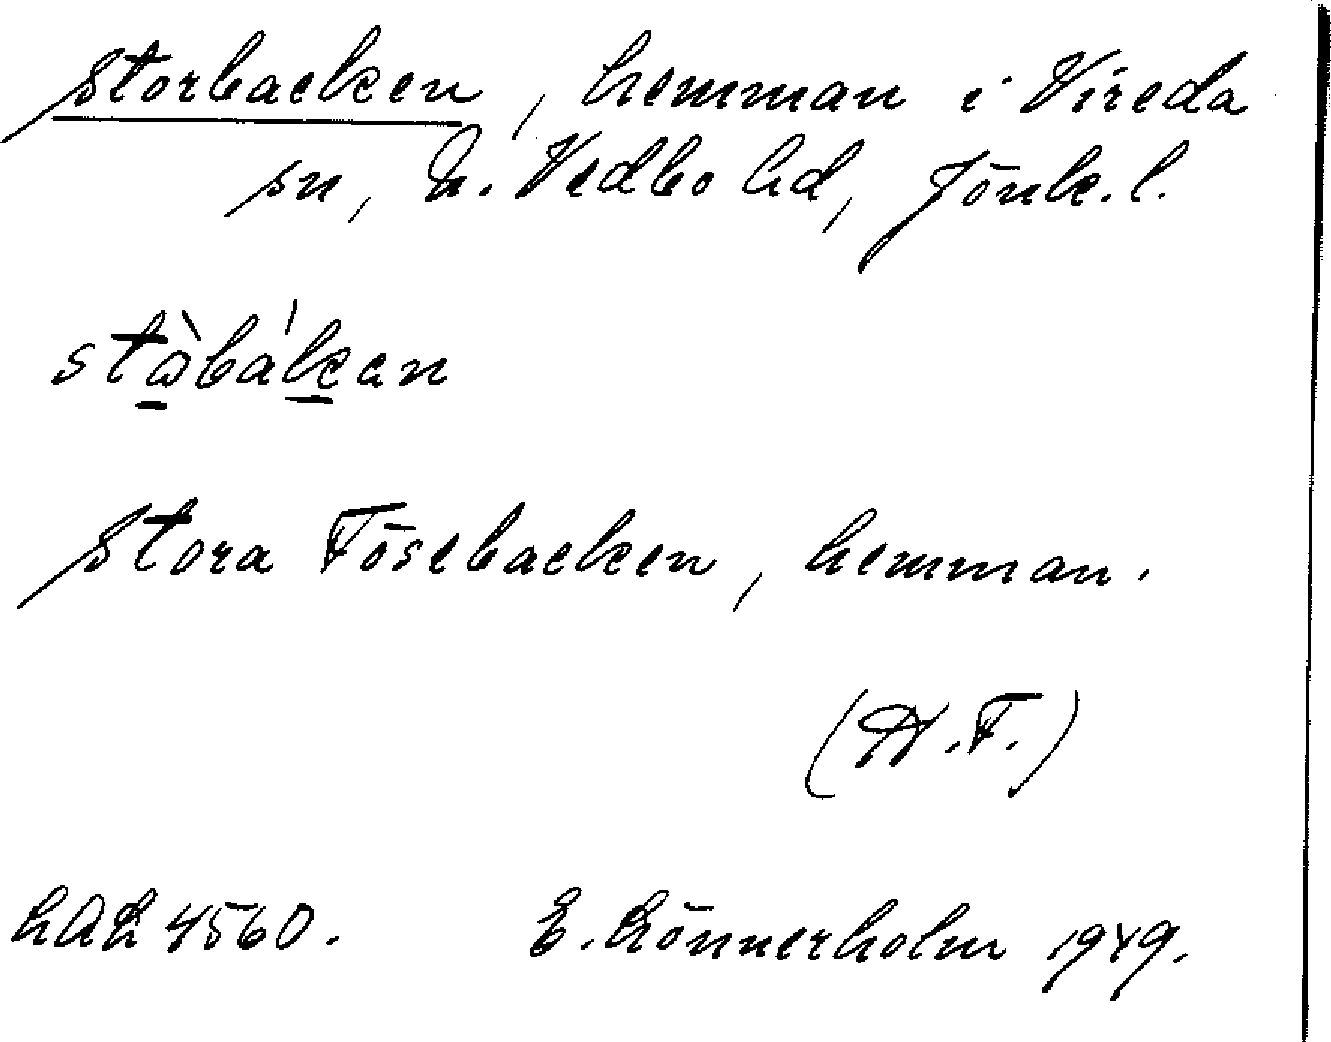 Storbacken, hemman i Vireda
sn, N. Vedbo hd, Jönk. l.
Stora Fösebacken, hemman.
(A.F.)
LAL 4560. E. Lönnerholm 1949.